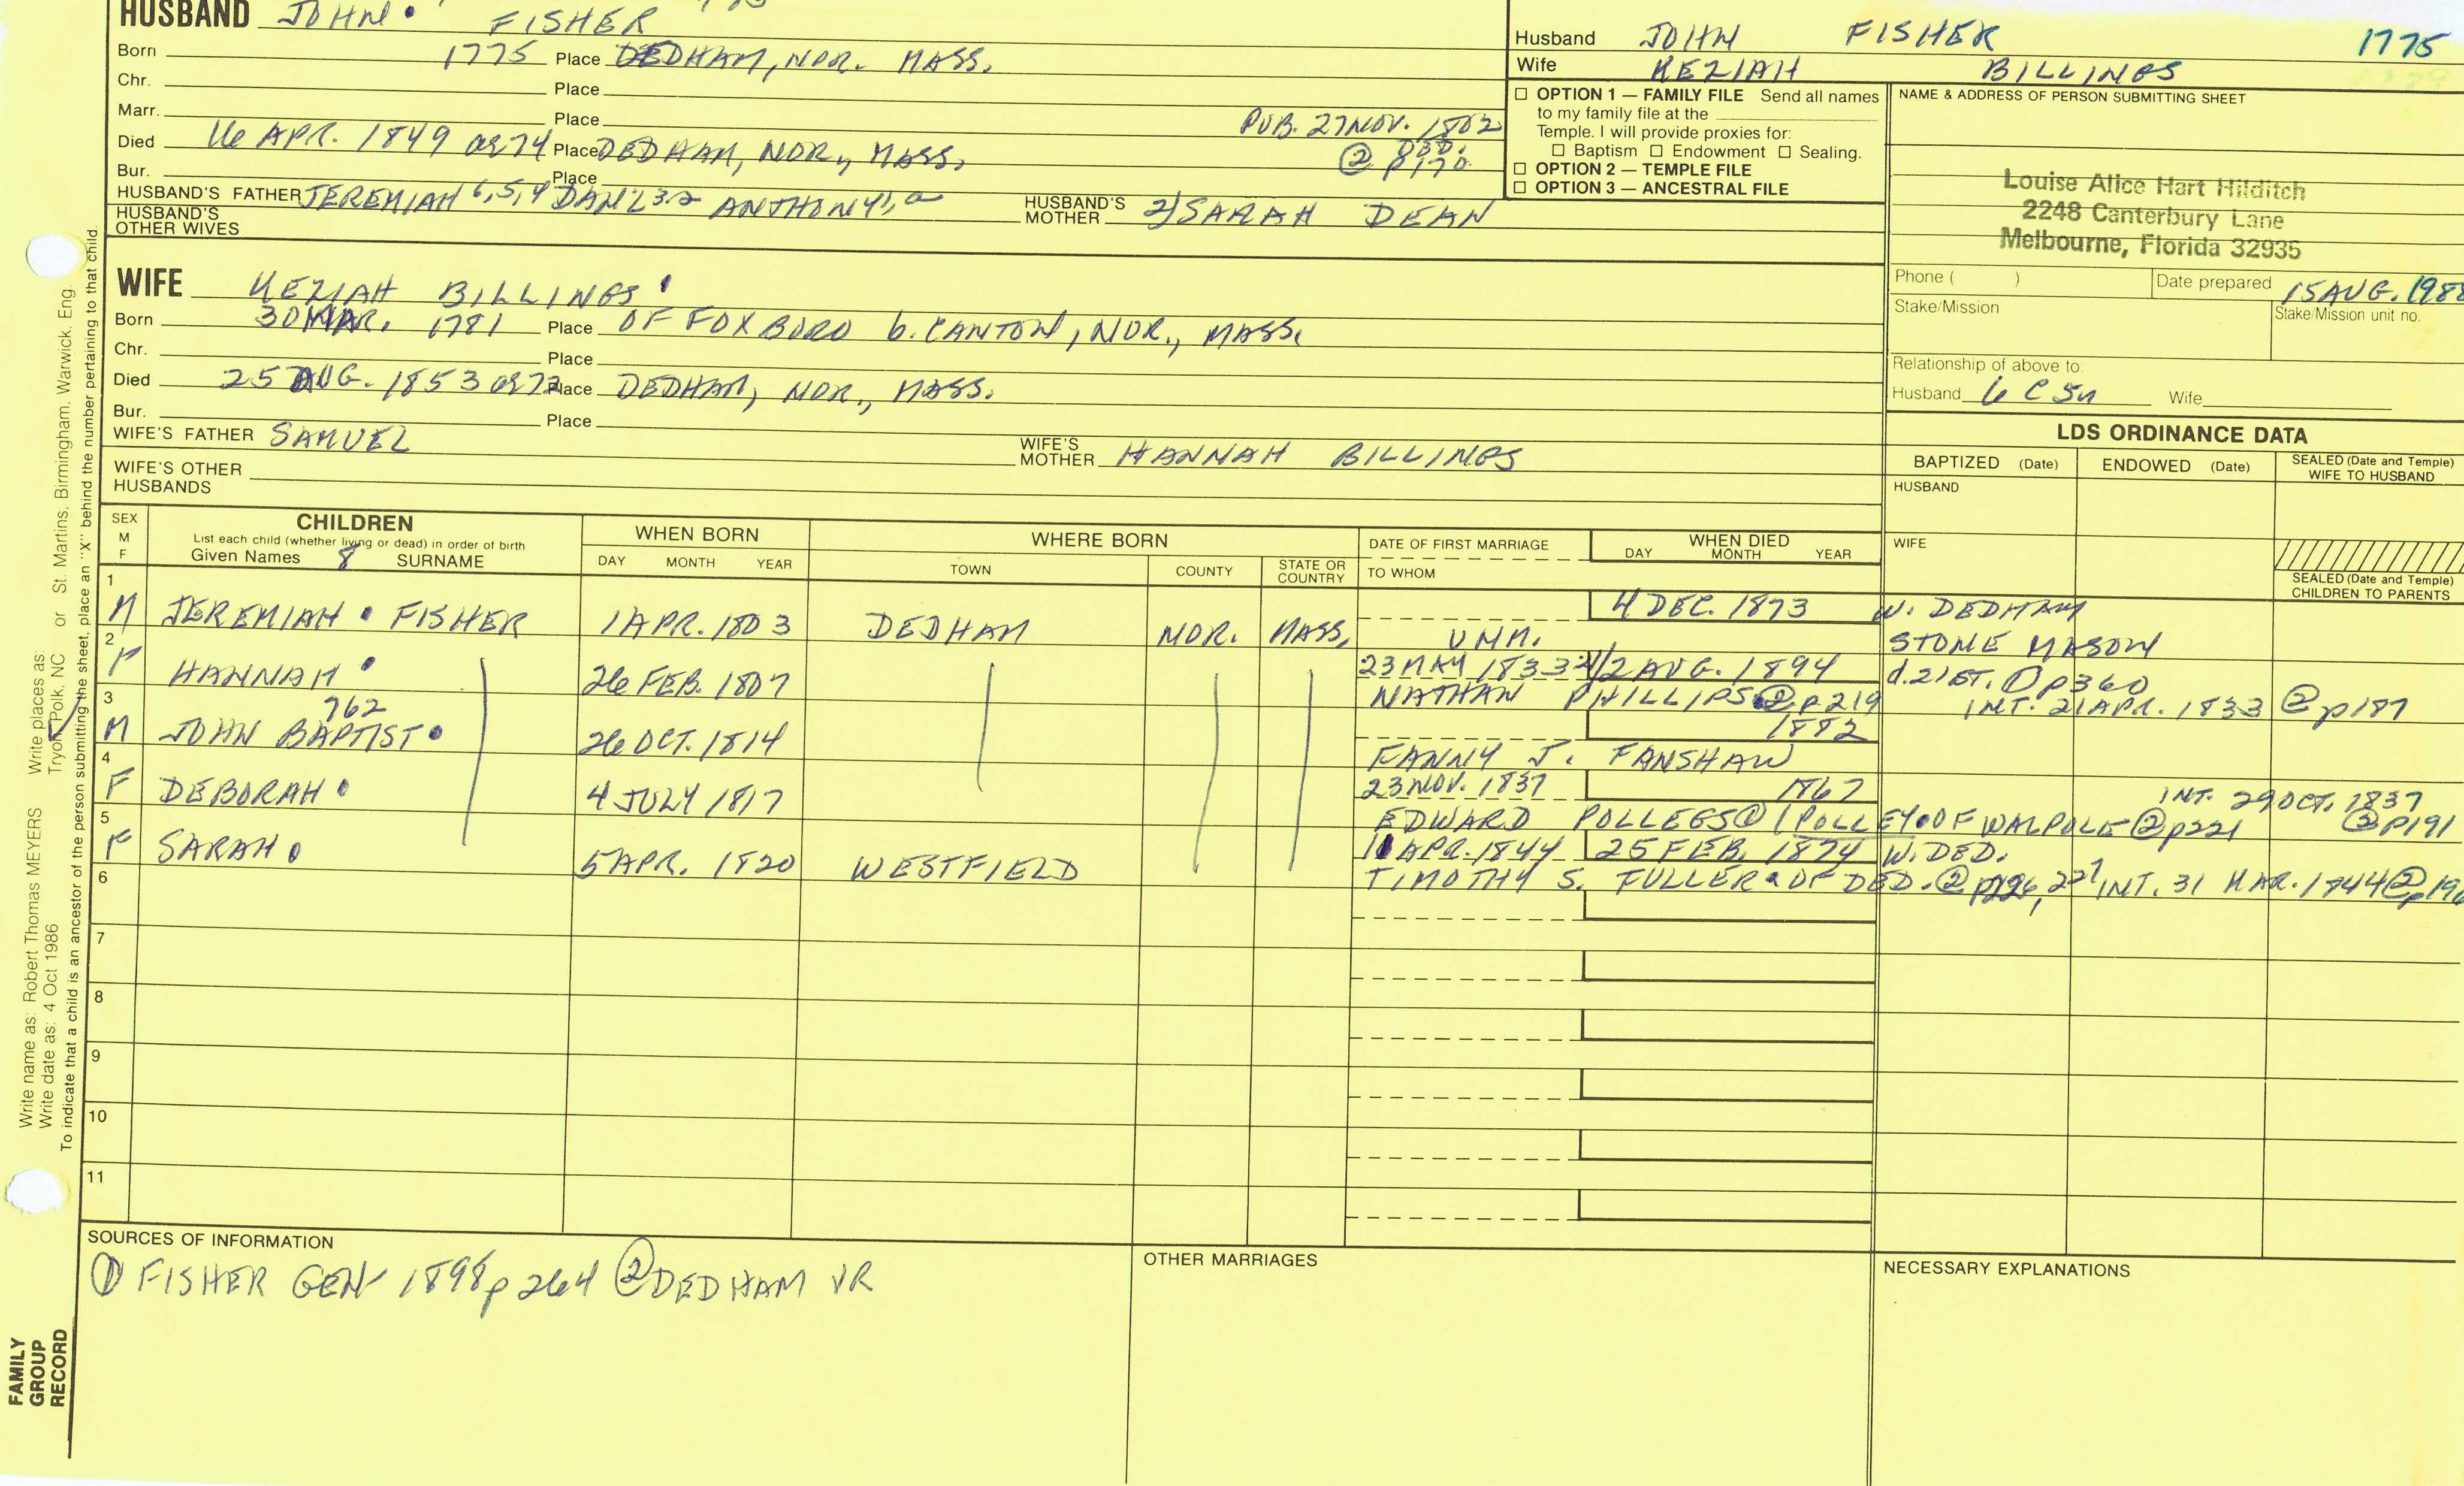 HUSBAND JOHN FISHER
Born 1775 Place DEDHAM, NOR. MASS.
Chr. Place
Marr. Place PUB. 27 NOV. 1802
Died 16 APR. 1849 ae 74 Place DEDHAM, NOR., MASS. DED.
② p170
Bur. Place
HUSBAND'S FATHER JEREMIAH 6,5,4 DAN'L 3,2 ANTHONY 1, HUSBAND'S MOTHER 2) SARAH DEAN
HUSBAND'S OTHER WIVES
Husband JOHN FISHER 1775
Wife KEZIAH BILLINGS
☐ OPTION 1 — FAMILY FILE Send all names
to my family file at the
Temple. I will provide proxies for:
☐ Baptism ☐ Endowment ☐ Sealing.
☐ OPTION 2 — TEMPLE FILE
☐ OPTION 3 — ANCESTRAL FILE
NAME & ADDRESS OF PERSON SUBMITTING SHEET
Louise Alice Hart Hilditch
2248 Canterbury Lane
Melbourne, Florida 32935
Phone ( ) Date prepared 15 AUG. 1988
Stake/Mission Stake/Mission unit no.
Relationship of above to.
Husband 6 C 5n Wife
WIFE KEZIAH BILLINGS
Born 30 MAR. 1781 Place OF FOXBORO b. CANTON, NOR., MASS.
Chr. Place
Died 25 AUG. 1853 ae 72 Place DEDHAM, NOR., MASS.
Bur. Place
WIFE'S FATHER SAMUEL WIFE'S MOTHER HANNAH BILLINGS
WIFE'S OTHER HUSBANDS
LDS ORDINANCE DATA
BAPTIZED (Date) ENDOWED (Date) SEALED (Date and Temple) WIFE TO HUSBAND
HUSBAND
WIFE
SEALED (Date and Temple) CHILDREN TO PARENTS
SEX M F CHILDREN WHEN BORN WHERE BORN DATE OF FIRST MARRIAGE WHEN DIED
List each child (whether living or dead) in order of birth
Given Names 8 SURNAME DAY MONTH YEAR TOWN COUNTY STATE OR COUNTRY TO WHOM DAY MONTH YEAR
1 4 DEC. 1873 W. DEDHAM
M JEREMIAH FISHER 1 APR. 1803 DEDHAM NOR. MASS. UNM. STONE MASON
2 23 MAY 1833 2 AUG. 1894 d. 21ST. ① p360
F HANNAH 26 FEB. 1807 NATHAN PHILLIPS ② p219 INT. 21 APR. 1833 ② p187
3 762 1882
M JOHN BAPTIST 26 OCT. 1814 FANNY J. FANSHAW
4 23 NOV. 1837 1867 INT. 29 OCT. 1837
F DEBORAH 4 JULY 1817 EDWARD POLLEGS ① / POLLEY OF WALPOLE ② p221 ② p191
5 11 APR. 1844 25 FEB. 1874 W. DED.
F SARAH 5 APR. 1820 WESTFIELD TIMOTHY S. FULLER OF DED. ② p226, 227 INT. 31 MAR. 1844 ② p196
6
7
8
9
10
11
SOURCES OF INFORMATION
① FISHER GEN 1898 p264 ② DEDHAM VR
OTHER MARRIAGES
NECESSARY EXPLANATIONS
Write name as: Robert Thomas MEYERS Write places as:
Write date as: 4 Oct 1986 Tryon, Polk, NC or St. Martins, Birmingham, Warwick, Eng.
To indicate that a child is an ancestor of the person submitting the sheet, place an "X" behind the number pertaining to that child.
FAMILY
GROUP
RECORD